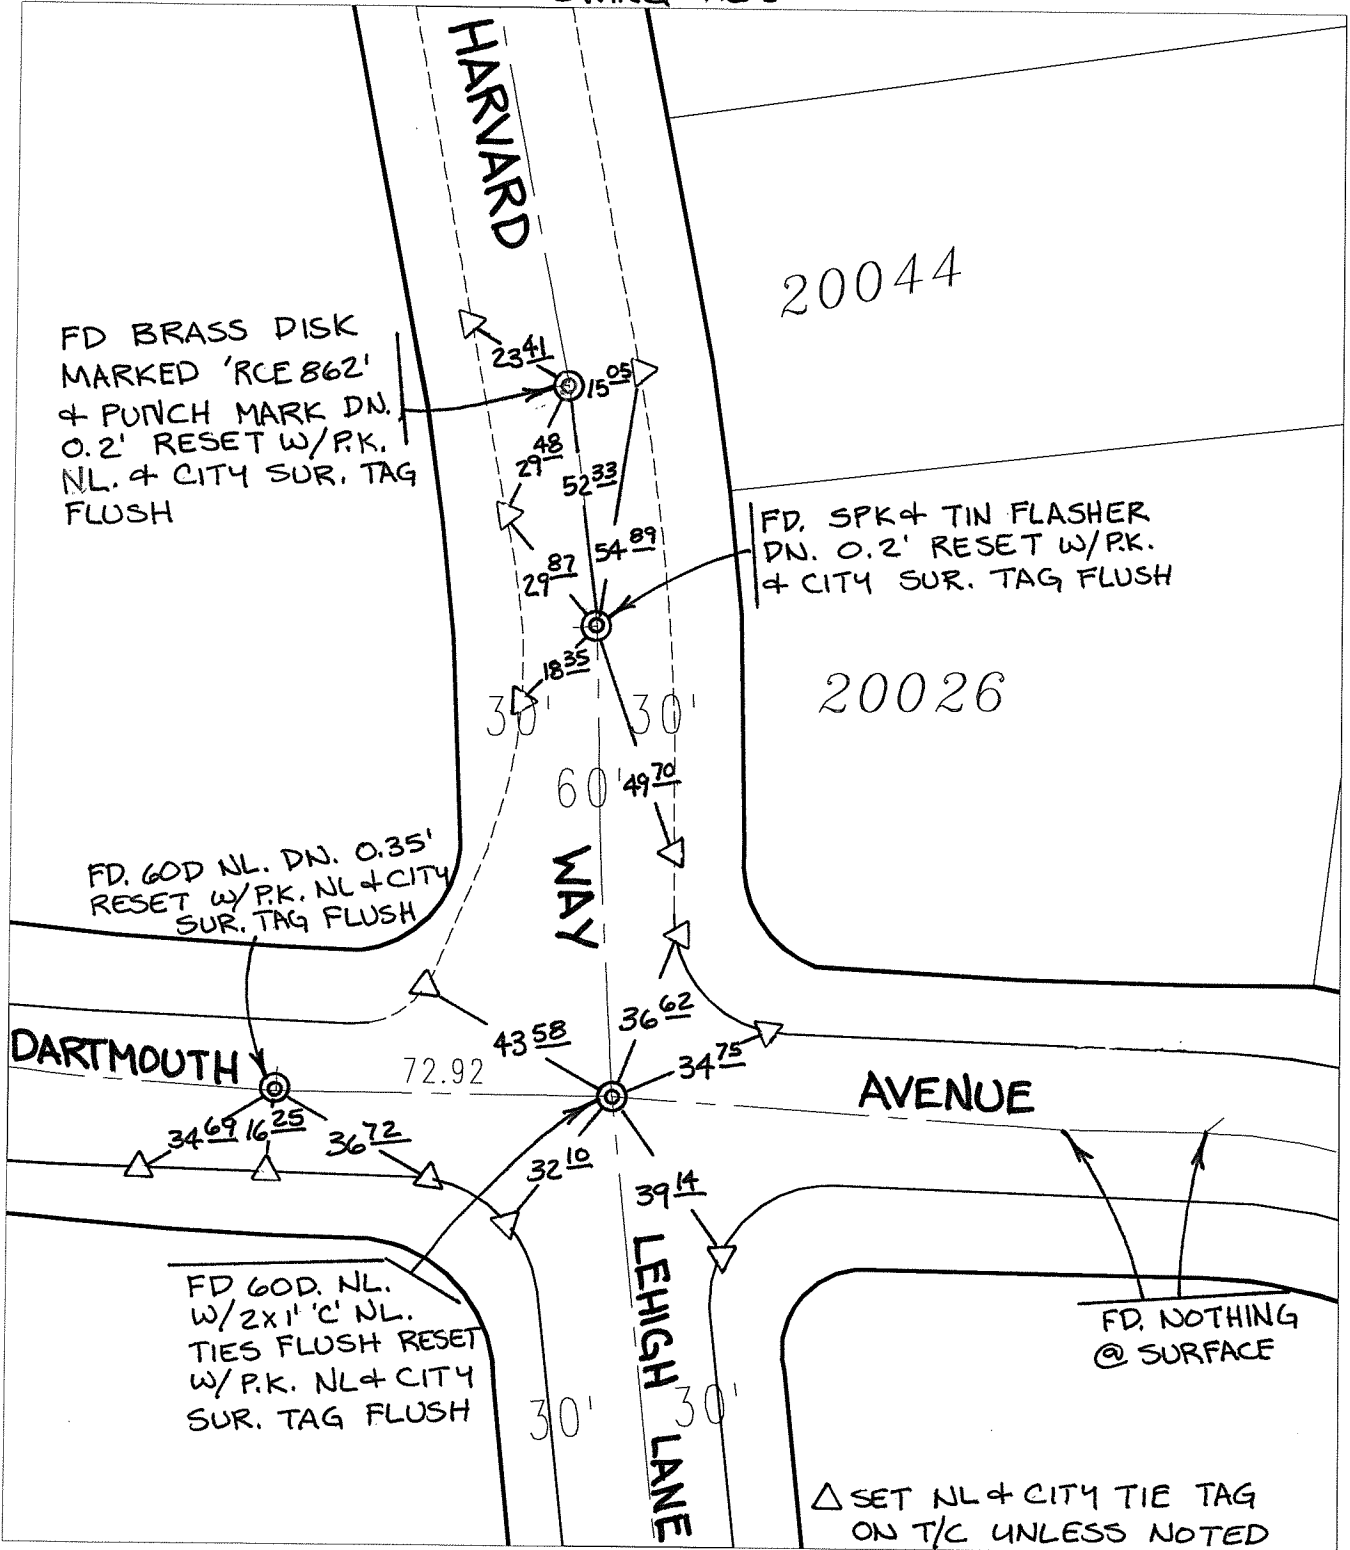 HARVARD
20044
FD BRASS DISK
MARKED 'RCE 862'
& PUNCH MARK DN.
0.2' RESET W/P.K.
NL. & CITY SUR. TAG
FLUSH
23 41
15 05
29 48
52 33
54 89
29 87
FD. SPK & TIN FLASHER
DN. 0.2' RESET W/P.K.
& CITY SUR. TAG FLUSH
18 35
30'
30'
20026
60'
49 70
WAY
FD. 60D NL. DN. 0.35'
RESET W/P.K. NL & CITY
SUR. TAG FLUSH
DARTMOUTH
43 58
36 62
72.92
34 75
AVENUE
34 69
16 25
36 72
32 10
39 14
FD 60D. NL.
W/2X1' 'C' NL.
TIES FLUSH RESET
W/P.K. NL & CITY
SUR. TAG FLUSH
LEHIGH LANE
30'
30'
FD. NOTHING
@ SURFACE
△ SET NL & CITY TIE TAG
ON T/C UNLESS NOTED